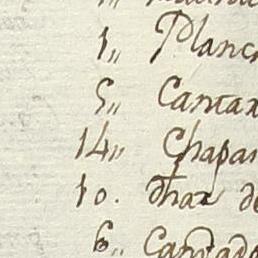 1,, Planc
5,, Cantax
14,, Chapar
10. dhax de
6,, Cantado